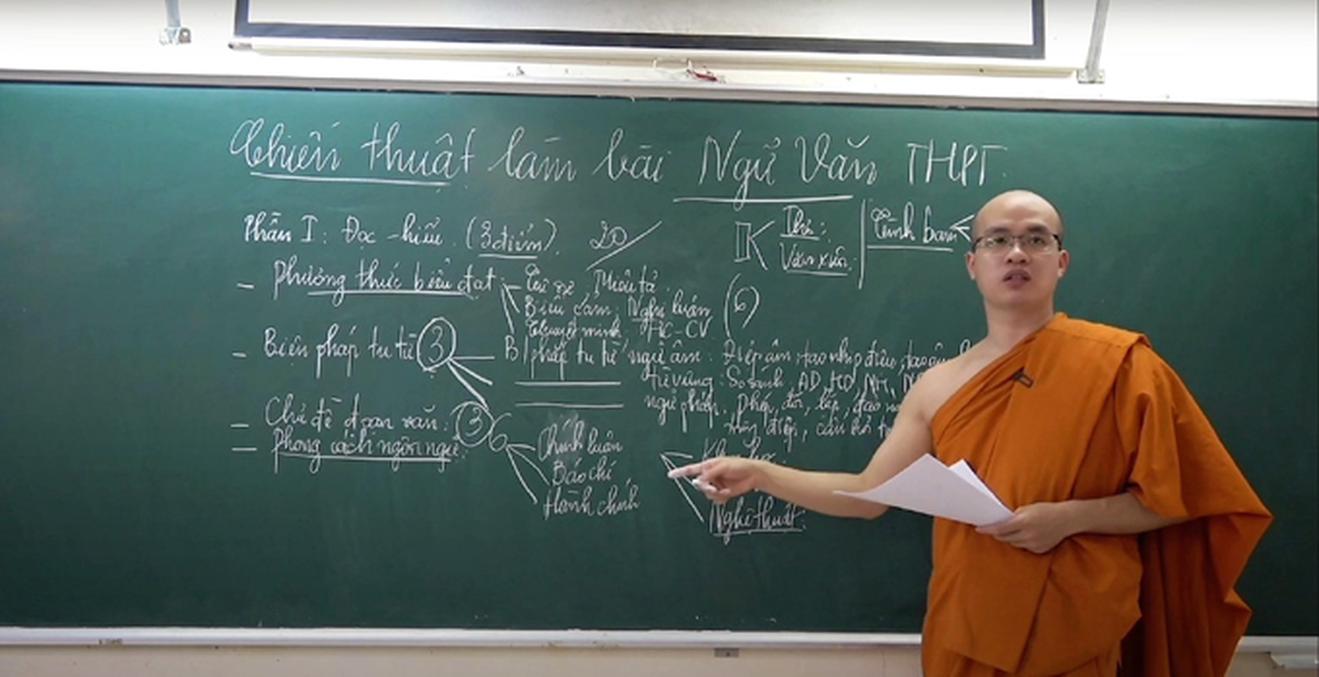 Chiến thuật làm bài Ngữ Văn THPT.
Phần I: Đọc - hiểu. (3 điểm). 20
II Thơ:
Văn xuôi.
- Phương thức biểu đạt Tự sự, Miêu tả
Biểu cảm, Nghị luận
Thuyết minh. HC-CV
(6)
- Biện pháp tu từ 3
B/pháp tu từ ngữ âm: Điệp âm, tạo nhịp điệu, tạo âm
Từ vựng: So sánh, AD, HD, NH,
ngữ pháp. Phép, đối, lặp, đảo
- Chủ đề đoạn văn: 3
- Phong cách ngôn ngữ. 6
Chính luận
Báo chí
Hành chính
Nghệ thuật.